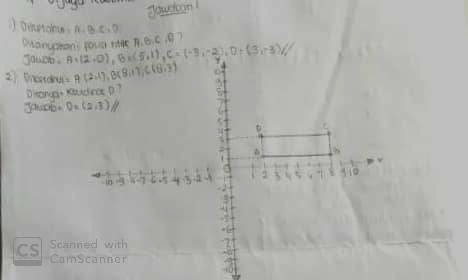 Jawaban!
1) Diketahui: A, B, C, D
Ditanyakan: posisi titik A, B, C, D?
Jawab: A=(2,0), B=(5,1), C=(-3,-2), D=(3,-3)//
2) Diketahui= A(2,1), B(8,1), C(8,3)
Ditanya= Koordinat D?
Jawab= D=(2,3)//
D C
A B
-10 -9 -8 -7 -6 -5 -4 -3 -2 -1 1 2 3 4 5 6 7 8 9 10 x
CS Scanned with
CamScanner